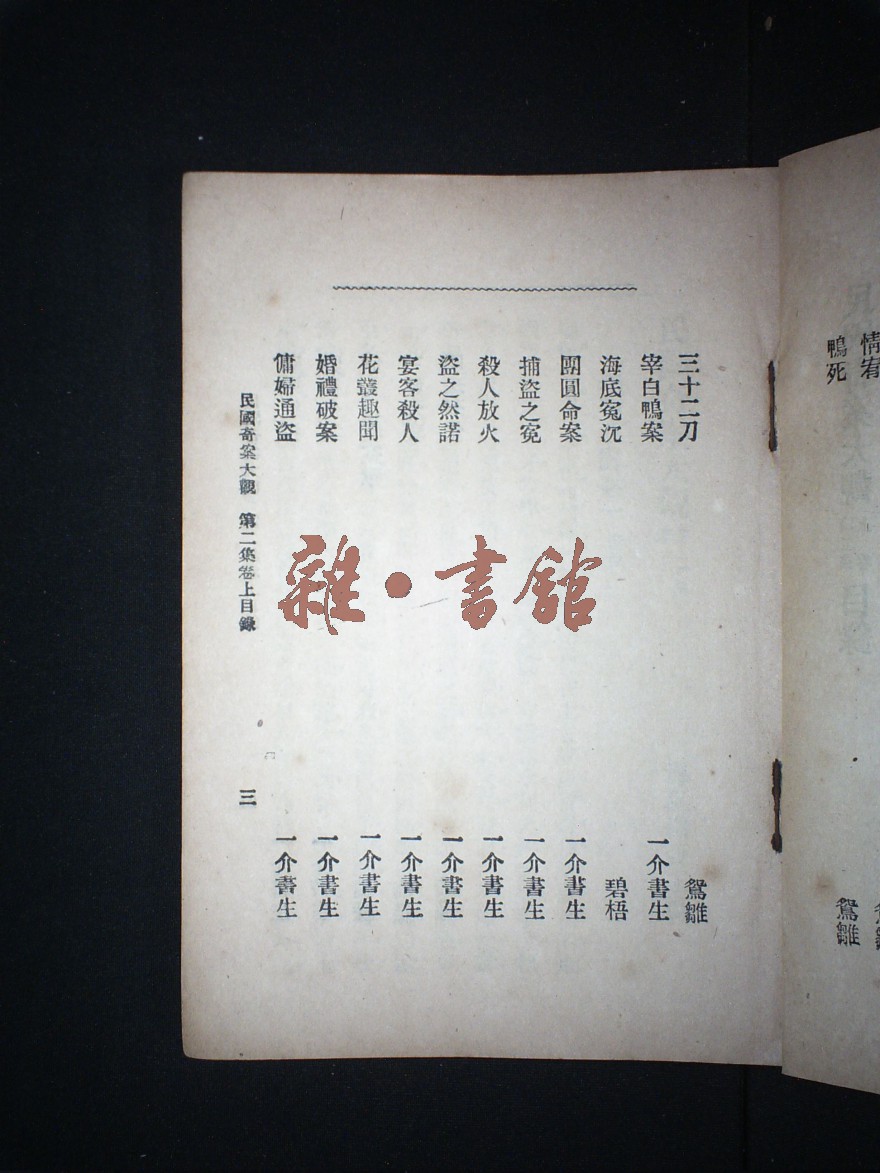 情宥
鴨死 鴛雛
三十二刀 鴛雛
宰白鴨案 一介書生
海底冤沉 碧梧
團圓命案 一介書生
捕盜之冤 一介書生
殺人放火 一介書生
盜之然諾 一介書生
宴客殺人 一介書生
花叢趣聞 一介書生
婚禮破案 一介書生
傭婦通盜 一介書生
民國奇案大觀 第二集卷上目錄 三
雜·書館